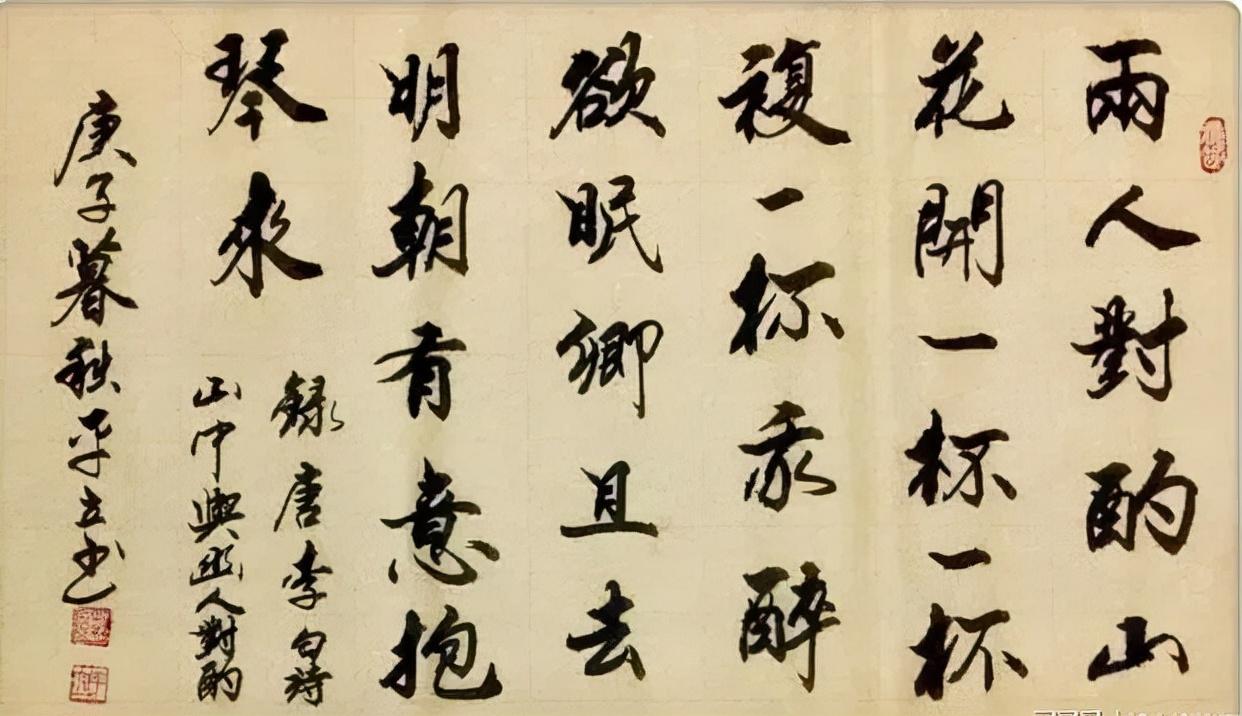 兩人對酌山
花開一杯一杯
複一杯我醉
欲眠卿且去
明朝有意抱
琴來
錄唐李白詩
山中與幽人對酌
庚子暮秋平立书